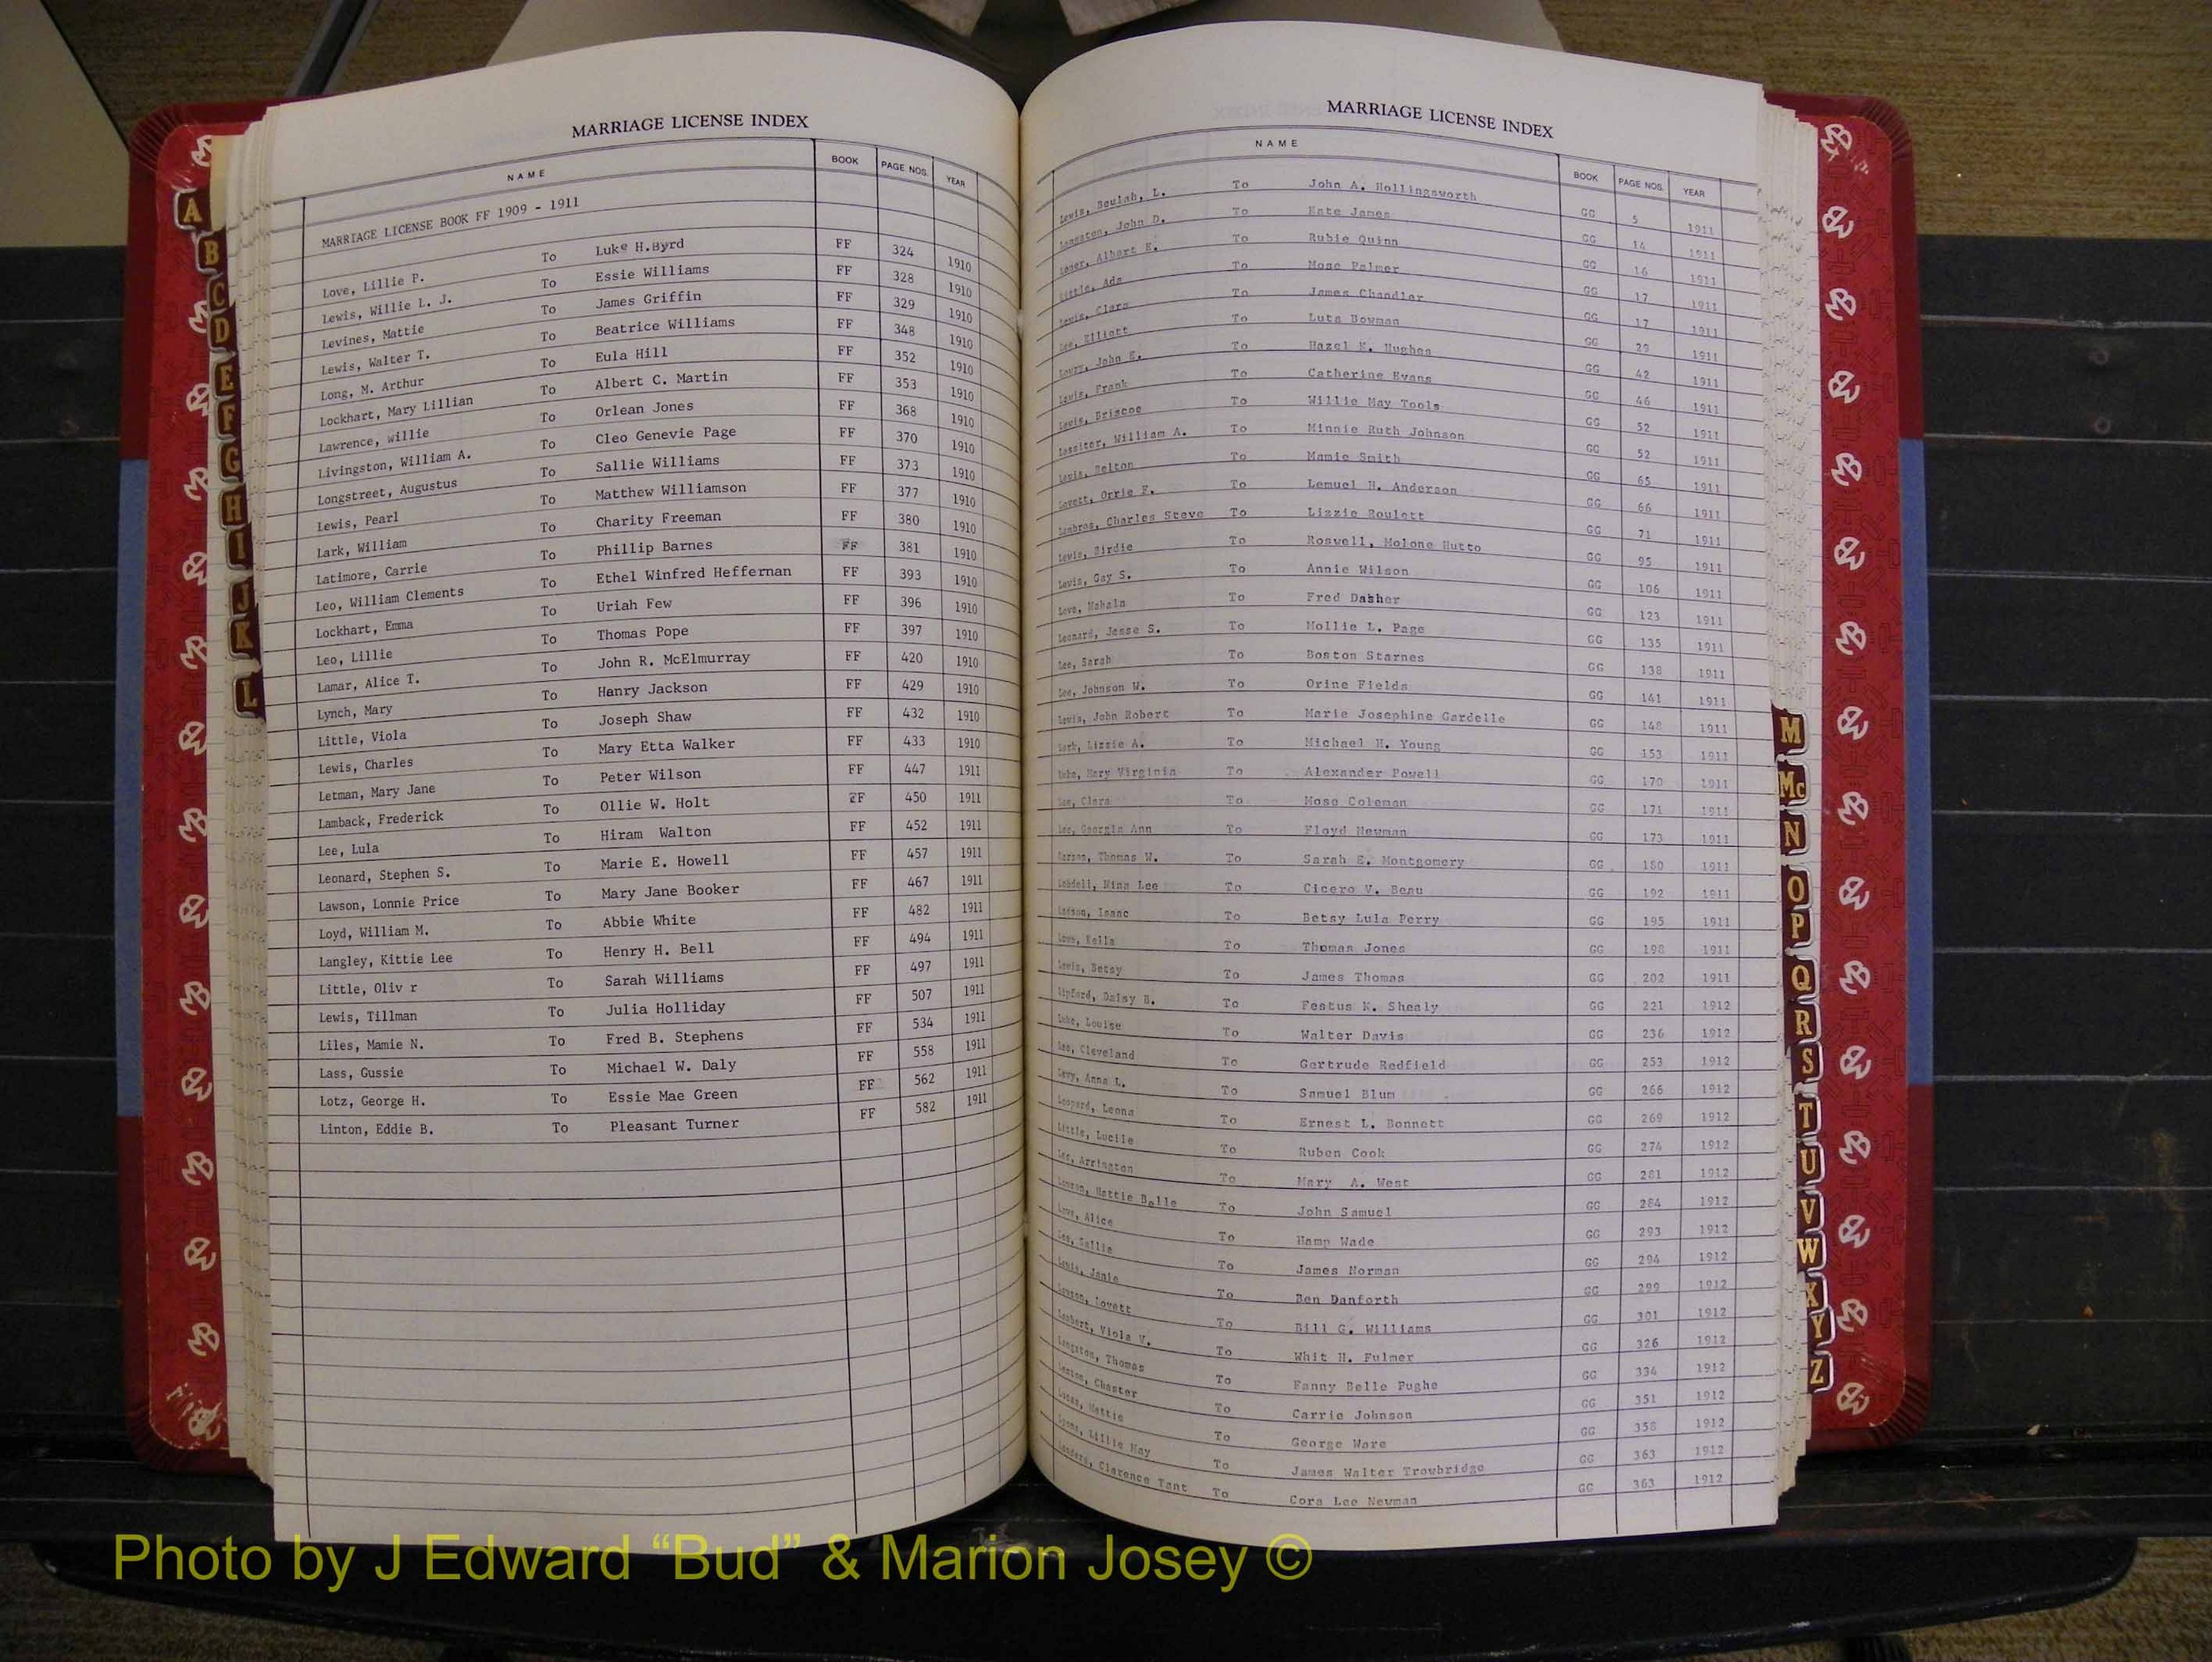 MARRIAGE LICENSE INDEX
NAME BOOK PAGE NOS. YEAR
MARRIAGE LICENSE BOOK FF 1909 - 1911
Love, Lillie P. To Luke H.Byrd FF 324 1910
Lewis, Willie L. J. To Essie Williams FF 328 1910
Levines, Mattie To James Griffin FF 329 1910
Lewis, Walter T. To Beatrice Williams FF 348 1910
Long, M. Arthur To Eula Hill FF 352 1910
Lockhart, Mary Lillian To Albert C. Martin FF 353 1910
Lawrence, willie To Orlean Jones FF 368 1910
Livingston, William A. To Cleo Genevie Page FF 370 1910
Longstreet, Augustus To Sallie Williams FF 373 1910
Lewis, Pearl To Matthew Williamson FF 377 1910
Lark, William To Charity Freeman FF 380 1910
Latimore, Carrie To Phillip Barnes FF 381 1910
Leo, William Clements To Ethel Winfred Heffernan FF 393 1910
Lockhart, Emma To Uriah Few FF 396 1910
Leo, Lillie To Thomas Pope FF 397 1910
Lamar, Alice T. To John R. McElmurray FF 420 1910
Lynch, Mary To Henry Jackson FF 429 1910
Little, Viola To Joseph Shaw FF 432 1910
Lewis, Charles To Mary Etta Walker FF 433 1910
Letman, Mary Jane To Peter Wilson FF 447 1911
Lamback, Frederick To Ollie W. Holt FF 450 1911
Lee, Lula To Hiram Walton FF 452 1911
Leonard, Stephen S. To Marie E. Howell FF 457 1911
Lawson, Lonnie Price To Mary Jane Booker FF 467 1911
Loyd, William M. To Abbie White FF 482 1911
Langley, Kittie Lee To Henry H. Bell FF 494 1911
Little, Oliv r To Sarah Williams FF 497 1911
Lewis, Tillman To Julia Holliday FF 507 1911
Liles, Mamie N. To Fred B. Stephens FF 534 1911
Lass, Gussie To Michael W. Daly FF 558 1911
Lotz, George H. To Essie Mae Green FF 562 1911
Linton, Eddie B. To Pleasant Turner FF 582 1911
MARRIAGE LICENSE INDEX
NAME BOOK PAGE NOS. YEAR
Lewis, Beulah, L. To John A. Hollingsworth GG 5 1911
Langston, John D. To Kate James GG 14 1911
Albert E. To Rubie Quinn GG 16 1911
Little, Ada To Mose Palmer GG 17 1911
Lewis, Clara To James Chandler GG 17 1911
Lee, Elliott To Luta Bowman GG 29 1911
Lowry, John E. To Hazel K. Hughes GG 42 1911
Lewis, Frank To Catherine Evans GG 46 1911
Lewis, Briscoe To Willie May Tools GG 52 1911
Lassiter, William A. To Minnie Ruth Johnson GG 52 1911
Lewis, Belton To Mamie Smith GG 65 1911
Lovett, Orrie F. To Lemuel H. Anderson GG 66 1911
Lambros, Charles Steve To Lizzie Roulett GG 71 1911
Lewis, Birdie To Roswell, Molone Hutto GG 95 1911
Lewis, Gay S. To Annie Wilson GG 106 1911
Love, Mahala To Fred Dasher GG 123 1911
Leonard, Jesse S. To Mollie L. Page GG 135 1911
Lee, Sarah To Boston Starnes GG 138 1911
Lee, Johnson W. To Orine Fields GG 141 1911
Lewis, John Robert To Marie Josephine Gardelle GG 148 1911
Lark, Lizzie A. To Michael H. Young GG 153 1911
Luke, Mary Virginia To Alexander Powell GG 170 1911
Lee, Clara To Mose Coleman GG 171 1911
Lee, Georgia Ann To Floyd Newman GG 173 1911
Thomas W. To Sarah E. Montgomery GG 180 1911
Lobdell, Nina Lee To Cicero V. Beau GG 192 1911
Isaac To Betsy Lula Perry GG 195 1911
Love, Kella To Thomas Jones GG 198 1911
Lewis, Betsy To James Thomas GG 202 1911
Lipford, Daisy B. To Festus K. Shealy GG 221 1912
Luke, Louise To Walter Davis GG 236 1912
Lee, Cleveland To Gertrude Redfield GG 253 1912
Levy, Anna L. To Samuel Blum GG 266 1912
Leopard, Leona To Ernest L. Bonnett GG 269 1912
Little, Lucile To Ruben Cook GG 274 1912
Lee, Arrington To Mary A. West GG 281 1912
Lawson, Mattie Belle To John Samuel GG 284 1912
Love, Alice To Hamp Wade GG 293 1912
Lee, Sallie To James Norman GG 294 1912
Lewis, Janie To Ben Danforth GG 299 1912
Lawson, Lovett To Bill G. Williams GG 301 1912
Lambert, Viola V. To Whit H. Fulmer GG 326 1912
Langston, Thomas To Fanny Belle Pughe GG 334 1912
Chaster To Carrie Johnson GG 351 1912
Lucas, Mattie To George Ware GG 358 1912
Lyons, Lillie May To James Walter Trowbridge GG 363 1912
Landers, Clarence Tant To Cora Lee Newman GG 363 1912
A
B
C
D
E
F
G
H
I
J
K
L
M
Mc
N
O
P
Q
R
S
T
U
V
W
X
Y
Z
Photo by J Edward “Bud” & Marion Josey ©